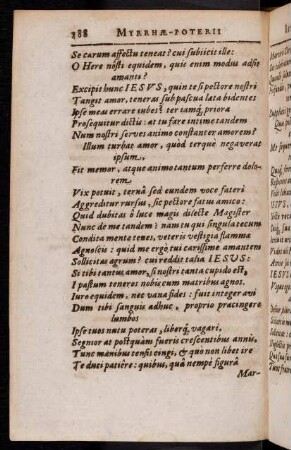 388 MYRRHÆ-POTERII
Se carum affectu teneat? cui subiicit ille:
O Here nosti equidem, quis enim modus adsit
amanti?
Excipit hunc IESVS, quin te si pectore nostri
Tangit amor, teneras sub pascua lata bidentes
Ipse meas errare iubes? ter tamq; priora
Prosequitur dictis: at tu fare intimè tandem
Num nostri serves animo constanter amorem?
Illum turbat amor, quod terque negaverat
ipsum,
Fit memor, atque animo tantum perferre dolo-
rem
Vix potuit, ternâ sed eundem voce fateri
Aggreditur rursus, sic pectore fatus amico:
Quid dubitas ô luce magis dilecte Magister
Nunc de me tandem? nam tu qui singula tecum
Condita mente tenes, veteris vestigia flamma
Agnoscis: quid me ergò tui carissime amantem
Sollicitas ægrum? cui reddit talia IESVS:
Si tibi tantus amor, si nostri tanta cupido est,
I pastum teneros nobis cum matribus agnos.
Iuro equidem, nec vana fides: fuit integer ævi
Dum tibi sanguis adhuc, proprio pracingere
lumbos
Ipse tuos nutu poteras, liberq́; vagari,
Segnior at postquàm fueris crescentibus annis,
Tunc manibus tensis cingi, & quo non libet ire
Te duci patiêre: quibus, quâ nempè figurâ
Mar-